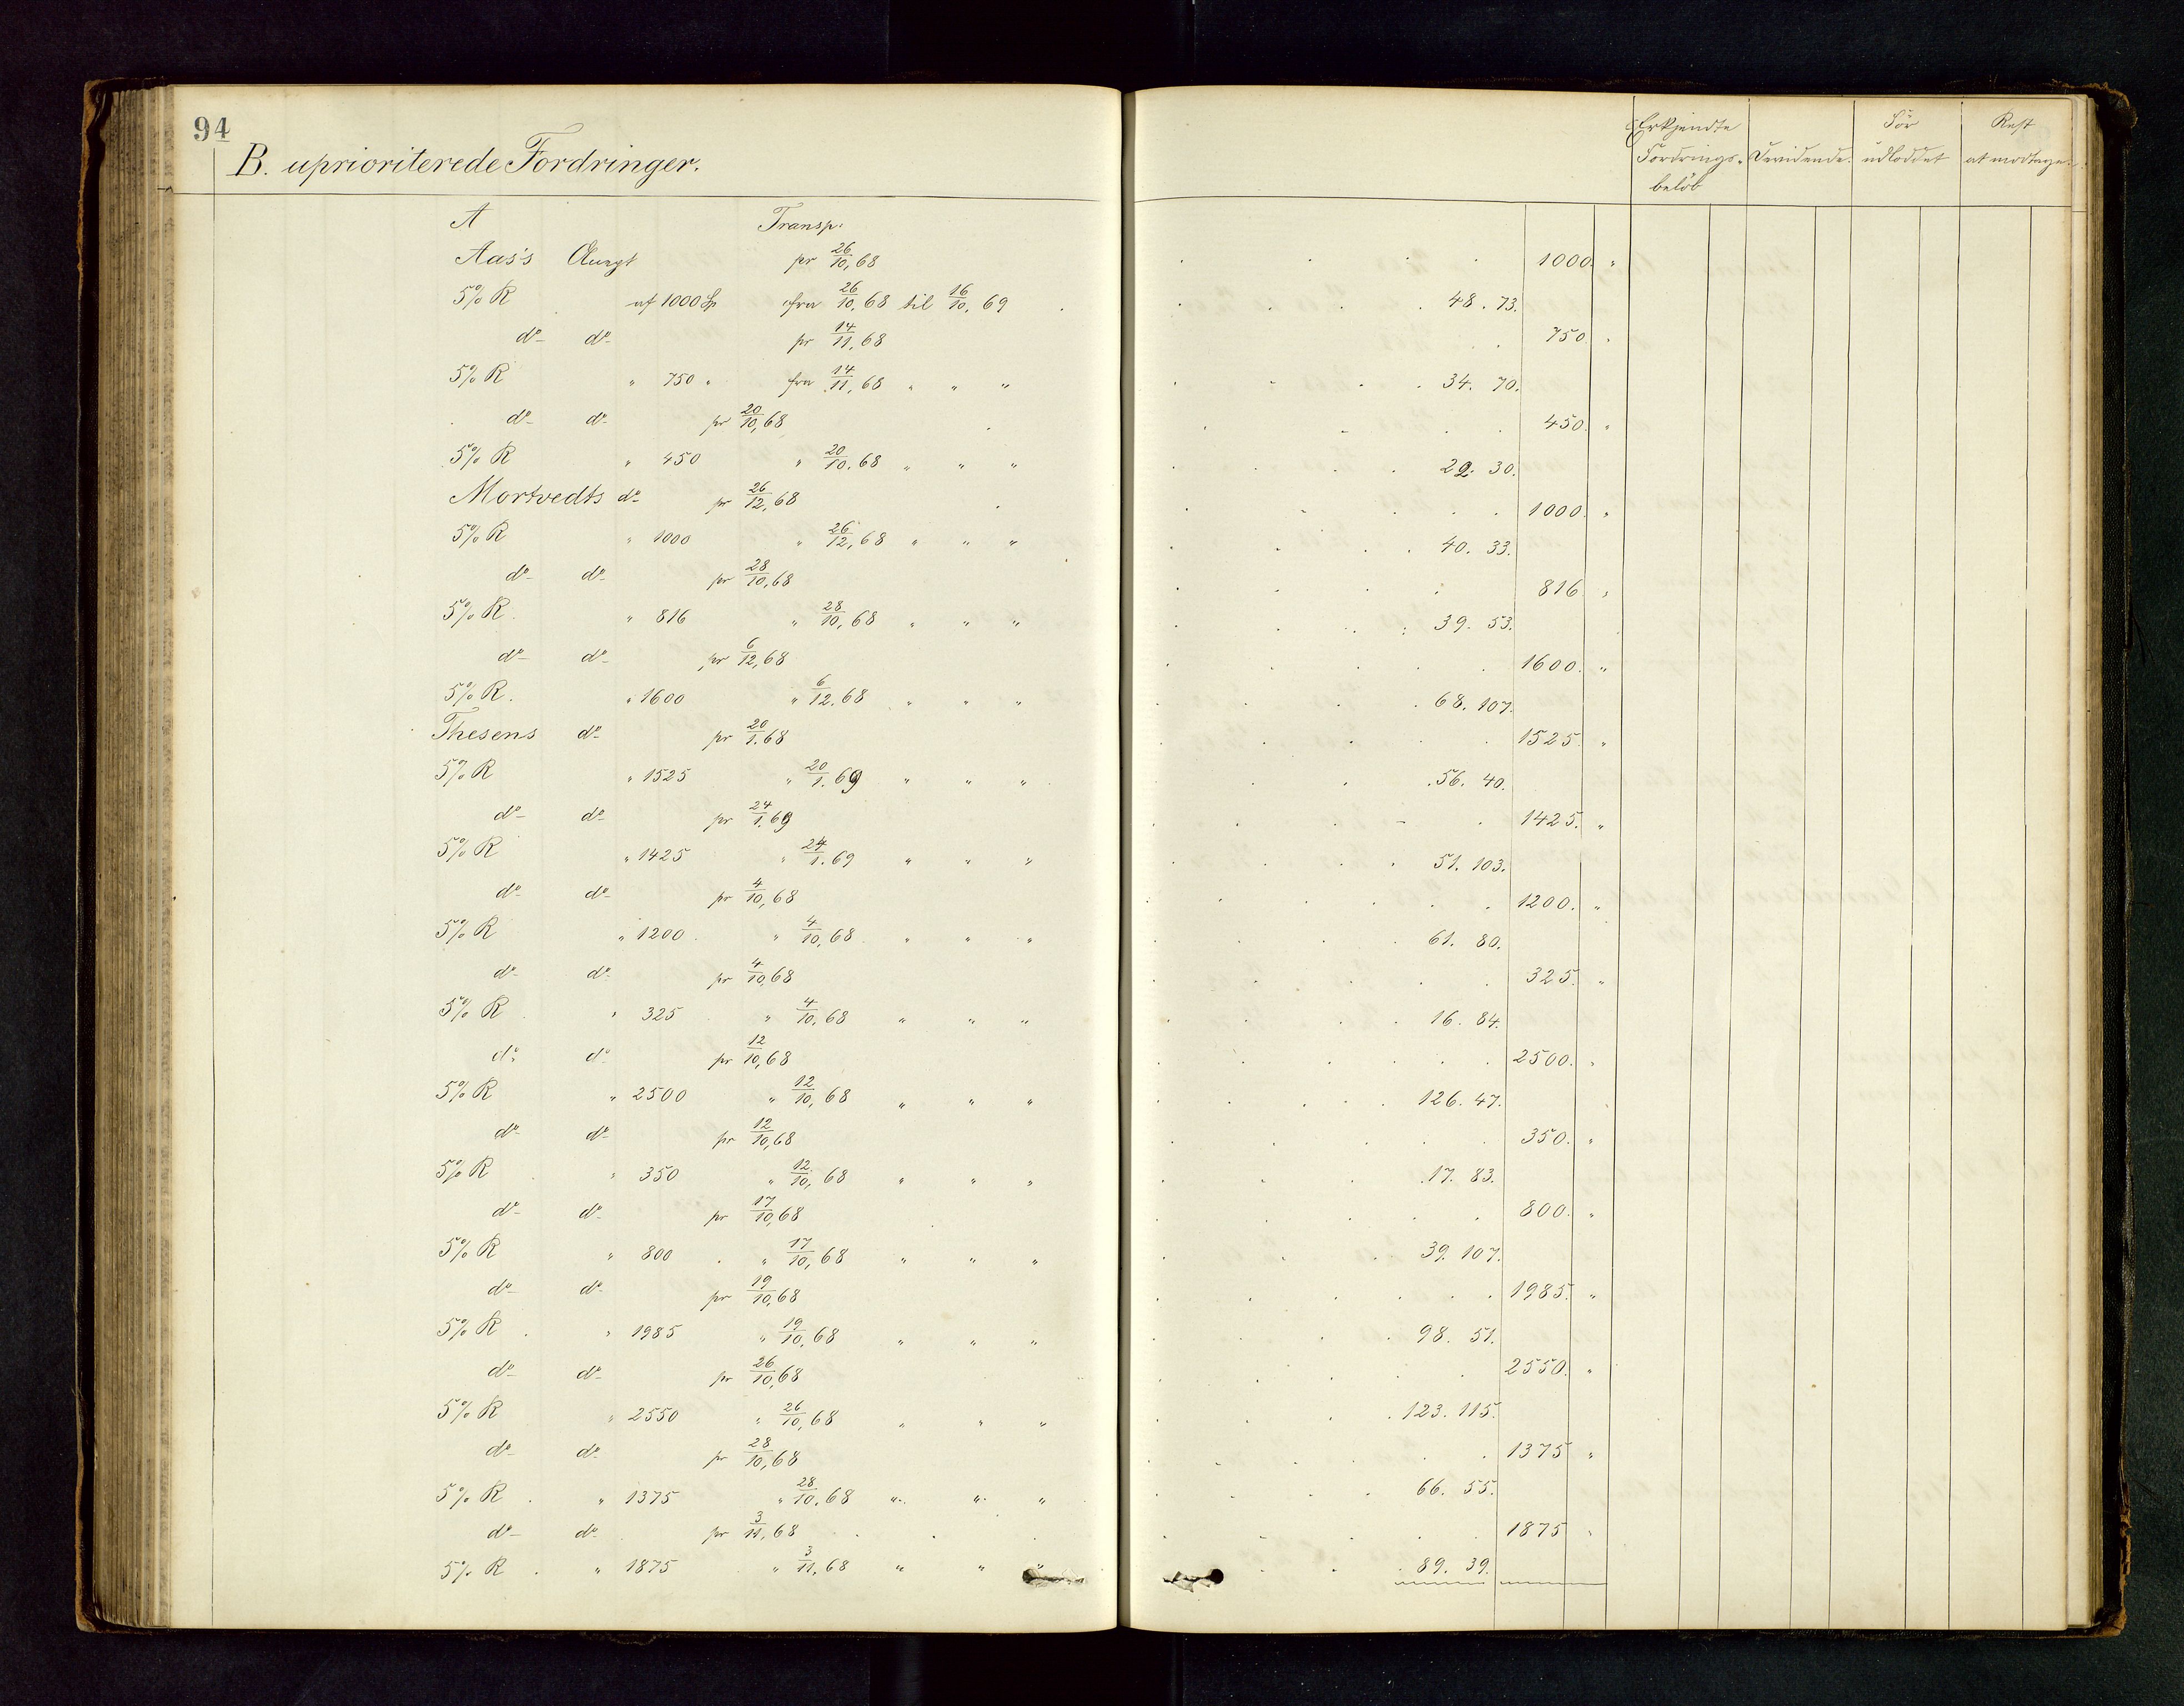 94
B. uprioriterede Fordringer.
Erkjendte Fordrings- beløb
Dividende.
Før udloddet
Rest at modtage.
A Transp:
Aas's pr 26/10, 68 1000. "
5% R af 1000 Sp fra 26/10, 68 til 16/10, 69 48. 73.
do do pr 14/11, 68 750. "
5% R " 750 " fra 14/11, 68 " " " 34. 70.
do do pr 20/10, 68 450. "
5% R " 450 " 20/10, 68 " " " 22. 30.
Mortvedts do pr 26/12, 68 1000. "
5% R " 1000 " 26/12, 68 " " " 40. 33.
do do pr 28/10, 68 816 "
5% R " 816 " 28/10, 68 " " " 39. 53.
do do pr 6/12, 68 1600. "
5% R. " 1600 " 6/12. 68 " " " 68. 107.
Thesens do pr 20/1. 68 1525. "
5% R " 1525 " 20/1. 69 " " " 56. 40.
do do pr 24/1. 69 1425. "
5% R " 1425 " 24/1. 69 " " " 51. 103.
do do pr 4/10, 68 1200. "
5% R " 1200 " 4/10, 68 " " " 61. 80.
do do pr 4/10, 68 325. "
5% R " 325 " 4/10, 68 " " " 16. 84.
do do pr 12/10, 68 2500. "
5% R " 2500 " 12/10, 68 " " " 126. 47.
do do pr 12/10, 68 350. "
5% R " 350 " 12/10, 68 " " " 17. 83.
do do pr 17/10, 68 800. "
5% R " 800 " 17/10, 68 " " " 39. 107.
do do pr 19/10, 68 1985. "
5% R " 1985 " 19/10, 68 " " " 98. 51.
do do pr 26/10, 68 2550. "
5% R " 2550 " 26/10, 68 " " " 123. 115.
do do pr 28/10, 68 1375 "
5% R " 1375 " 28/10, 68 " " " 66. 55.
do do pr 3/11, 68 1875 "
5% R " 1875 " 3/11, 68 " " " 89. 39.